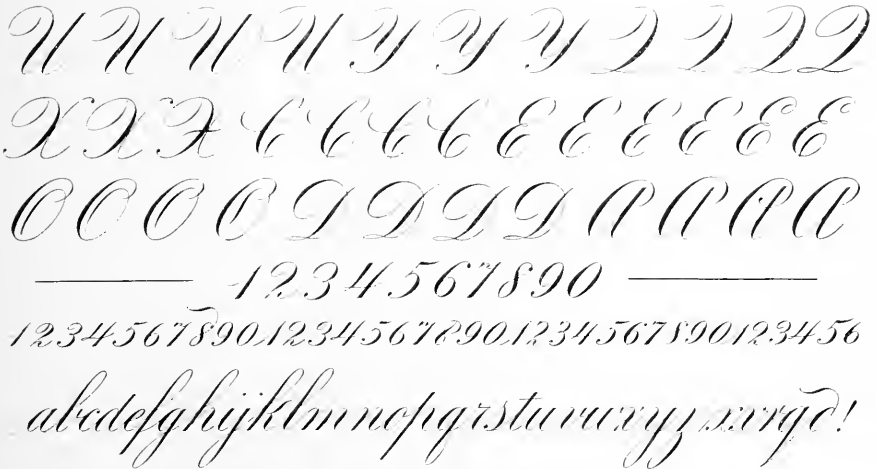 U U U U Y Y Y Q Q Q Q
X X X C C C C E E E E E E
O O O O D D D D A A A A
1234567890
1234567890,1234567890,1234567890123456
abcdefghijklmnopqrstuvwxyz